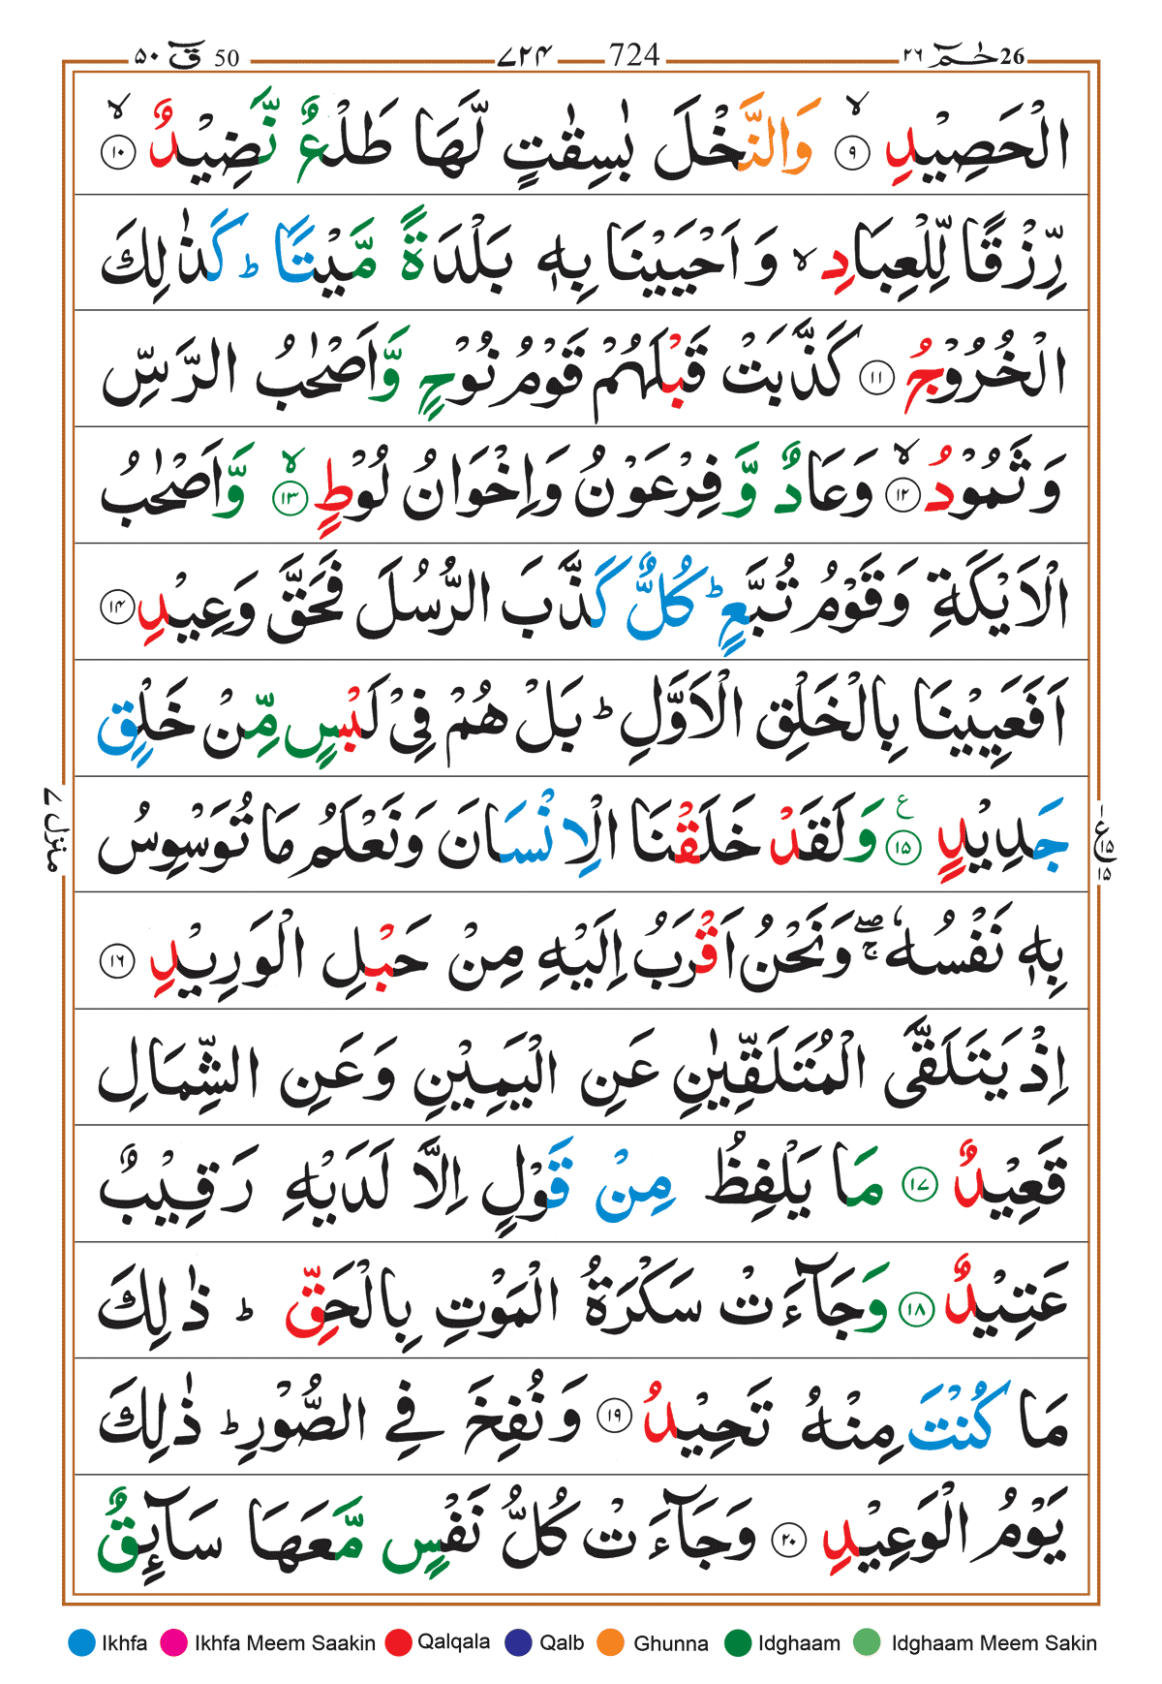 ۵۰ قٓ 50 ۷۲۴ 724 ۲۶ حٰمٓ 26
الْحَصِيْدِ ۙ‏﴿۹﴾ وَالنَّخْلَ بٰسِقٰتٍ لَّهَا طَلْعٌ نَّضِيْدٌ ۙ‏﴿۱۰﴾
رِّزْقًا لِّلْعِبَادِ ۙ وَاَحْيَيْنَا بِهٖ بَلْدَةً مَّيْتًا ؕ كَذٰلِكَ
الْخُرُوْجُ ﴿۱۱﴾ كَذَّبَتْ قَبْلَهُمْ قَوْمُ نُوْحٍ وَّاَصْحٰبُ الرَّسِّ
وَثَمُوْدُ ۙ‏﴿۱۲﴾ وَعَادٌ وَّفِرْعَوْنُ وَاِخْوَانُ لُوْطٍ ۙ‏﴿۱۳﴾ وَّاَصْحٰبُ
الْاَيْكَةِ وَقَوْمُ تُبَّعٍ ؕ كُلٌّ كَذَّبَ الرُّسُلَ فَحَقَّ وَعِيْدِ ﴿۱۴﴾
اَفَعَيِيْنَا بِالْخَلْقِ الْاَوَّلِ ؕ بَلْ هُمْ فِىْ لَبْسٍ مِّنْ خَلْقٍ
جَدِيْدٍ ﴿۱۵﴾ ع وَلَقَدْ خَلَقْنَا الْاِنْسَانَ وَنَعْلَمُ مَا تُوَسْوِسُ
بِهٖ نَفْسُهٗ ۖۚ وَنَحْنُ اَقْرَبُ اِلَيْهِ مِنْ حَبْلِ الْوَرِيْدِ ﴿۱۶﴾
اِذْ يَتَلَقَّى الْمُتَلَقِّيٰنِ عَنِ الْيَمِيْنِ وَعَنِ الشِّمَالِ
قَعِيْدٌ ﴿۱۷﴾ مَا يَلْفِظُ مِنْ قَوْلٍ اِلَّا لَدَيْهِ رَقِيْبٌ
عَتِيْدٌ ﴿۱۸﴾ وَجَآءَتْ سَكْرَةُ الْمَوْتِ بِالْحَقِّ ؕ ذٰلِكَ
مَا كُنْتَ مِنْهُ تَحِيْدُ ﴿۱۹﴾ وَنُفِخَ فِى الصُّوْرِ ؕ ذٰلِكَ
يَوْمُ الْوَعِيْدِ ﴿۲۰﴾ وَجَآءَتْ كُلُّ نَفْسٍ مَّعَهَا سَآئِقٌ
منزل ۷
ع ۱۵ ۱۵
Ikhfa Ikhfa Meem Saakin Qalqala Qalb Ghunna Idghaam Idghaam Meem Sakin